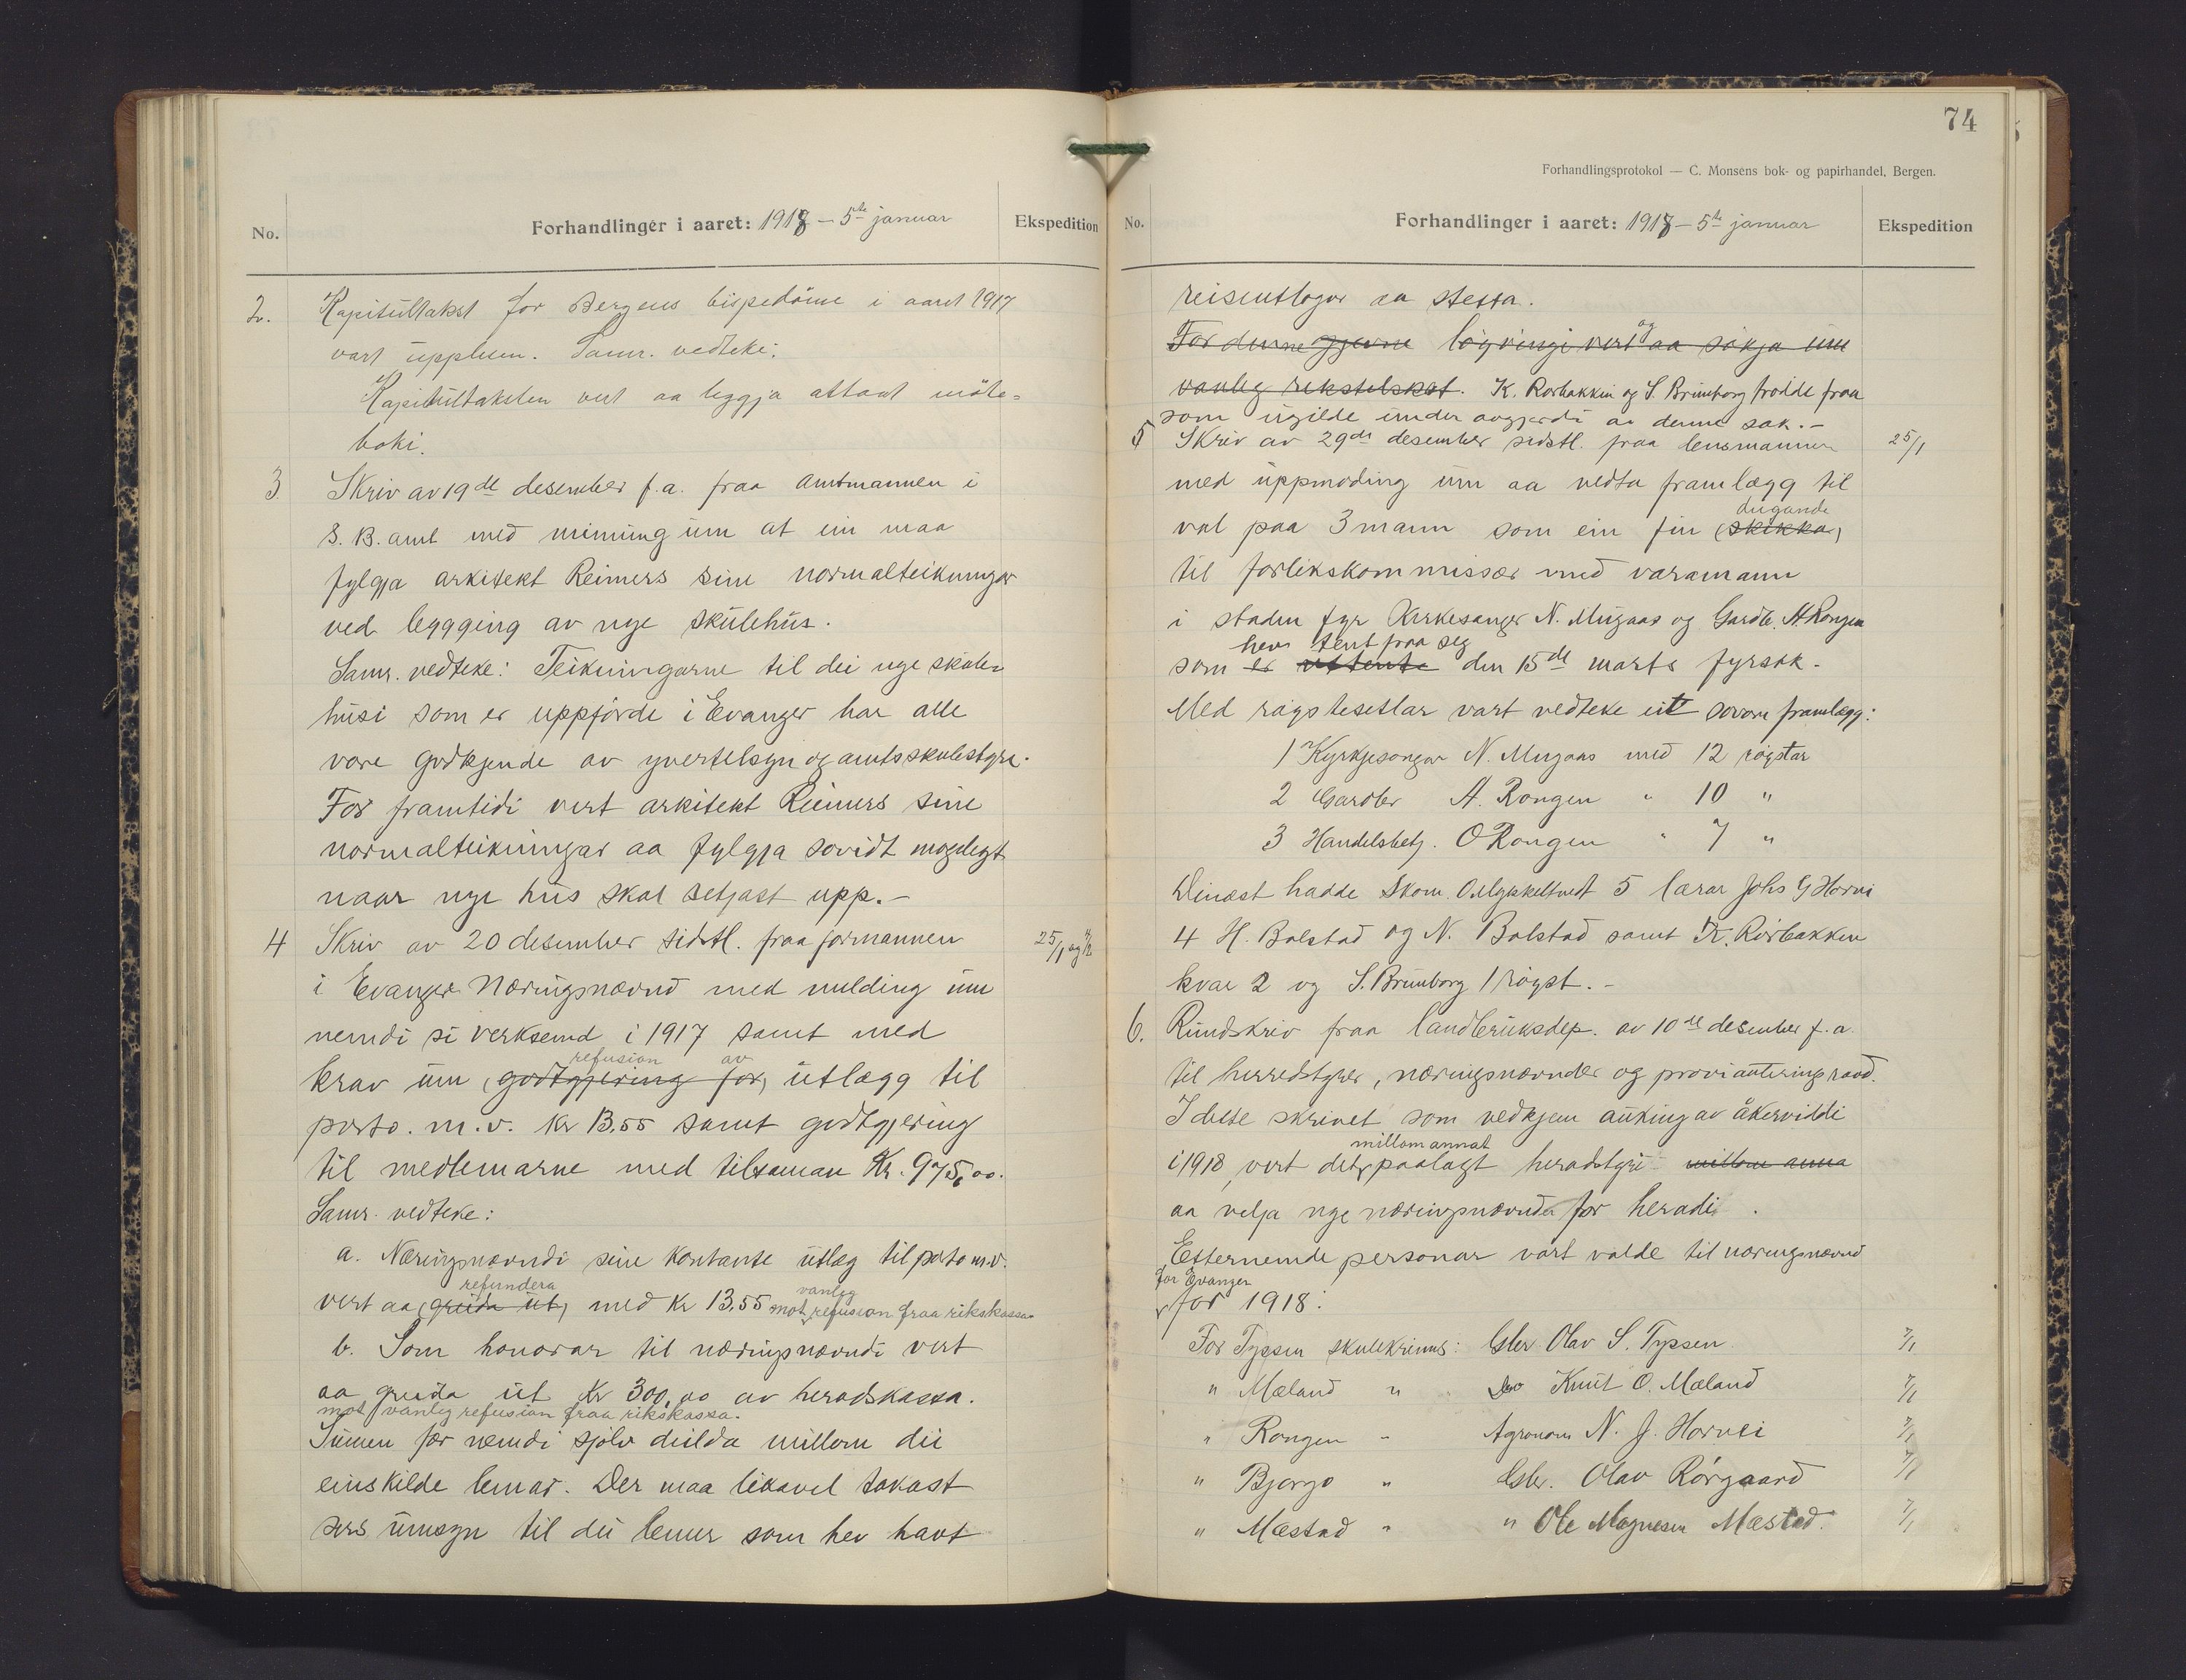 No.
Forhandlinger i aaret: 1918 – 5te januar
Ekspedition
2. Kapitultakst for Bergens bispedöme i aaret 1917
vart upplesen. Samr. vedteke:
Kapitultaksten vert aa leggja attaat möte-
boki.
3. Skriv av 19de desember f.a. fraa amtmannen i
S. B. amt med minning um at ein maa
fylgja arkitekt Reimers sine normalteikningar
ved bygging av nye skulehus.
Samr. vedteke: Teikningarne til dei nye skule-
husi som er uppförde i Evanger har alle
vore godkjende av yvertilsyn og amtsskulestyre.
For framtidi vert arkitekt Reimers sine
normalteikningar aa fylgja sovidt mogelegt
naar nye hus skal setjast upp.–
4 Skriv av 20 desember sidstl. fraa formannen 25/1 og
i Evanger Næringsnævnd med melding um
nemdi si verksemd i 1917 samt med
refusion av
krav um (godtgjering for) utlægg til
porto. m.v. kr 13,55 samt godtgjering
til medlemarne med tilsaman Kr. 975,00.
Samr. vedteke:
a. Næringsnævndi sine kontante utlæg til porto m.v.
refundera vanleg
vert aa (greida ut) med Kr 13,55 mot refusion fraa rikskassa
b. Som honorar til næringsnævndi vert
aa greida ut Kr 300,00 av heradskassa.
mot vanleg refusion fraa rikskassa.
Sumen fær nemdi sjölv deilda millom dei
einskilde lemar. Der maa likavel takast
sers umsyn til dei lemer som hev havt
74
Forhandlingsprotokol — C. Monsens bok- og papirhandel, Bergen.
No.
Forhandlinger i aaret: 1918 – 5te januar
Ekspedition
reiseutlogor aa stetta.
og
For denne gjerne löyvingi vert aa sökja um
vanleg rikstilskot. K. Rorbakkin og S. Brunborg trodde fraa
som ugilde under avgjerdi av denne sak.–
5 Skriv av 29de desember sidstl. fraa lensmannen 25/1
med uppmoding um aa vedta framlægg til
dugande
val paa 3 mann som ein fin (skikka)
til forlikskommissær med varamann
i staden fyr Kirkesanger N. Mugaas og Gardbr. A. Rongen
hev tent fraa seg
som er uttente den 15de marts fyrstk.
Med röystesetlar vart vedteke eit sovore framlægg:
1 Kyrkjesongar N. Mugaas med 12 röystar
2 Gardbr A. Rongen " 10 "
3 Handelsbetj. O Rongen " 7 "
Dinæst hadde Skom. O. Mykkeltvedt 5 lærar Johs G Horvei
4 H. Bolstad og N. Bolstad samt K. Rörbakken
kvar 2 og S. Brunborg 1 röyst.–
6. Rundskriv fraa landbruksdep. av 10de desember f.a.
til herredstyrer, næringsnævnder og provianteringsraad.
I dette skrivet som vedkjem auking av åkerviddi
millom annat
i 1918, vert det paalagt heradstyri millom anna
aa velja nye næringsnævnder for heradi.
Etternemde personar vart valde til næringsnævnd
for Evanger
for 1918:
For Tyssen skulekrins: Gbr. Olav S. Tyssen 7/1
" Mæland " Do Knut O. Mæland 7/1
" Rongen " Agronom N. J. Horvei 7/1
" Bjorgo " Gbr. Olav Rörgaard 7/1
" Mæstad " " Ole Magnesen Mæstad. 7/1